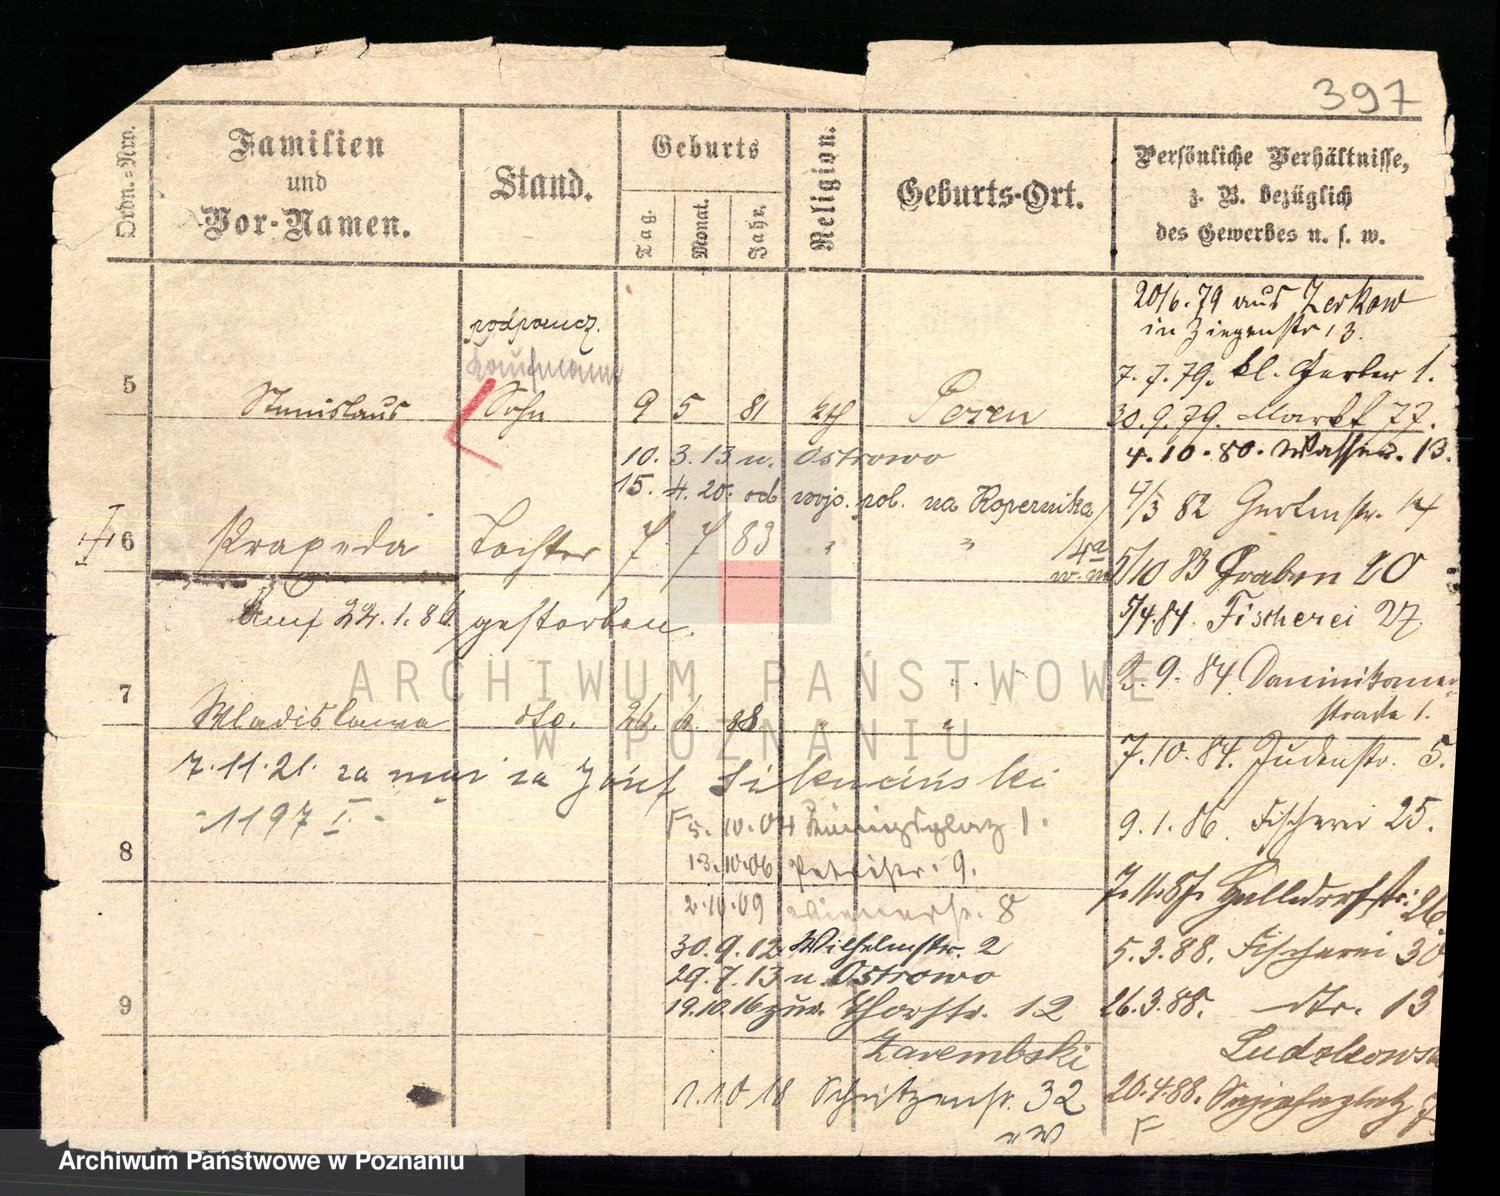 397
Ordn.-Nro.
Familien
und
Vor-Namen.
Stand.
Geburts
Tag.
Monat.
Jahr.
Religion.
Geburts-Ort.
Persönliche Verhältnisse,
z. B. bezüglich
des Gewerbes u. s. w.
20/6.79 aus Zerkow
in Ziegenstr 13.
7. 7. 79. kl. Gerber 1.
30. 9. 79. Markt 77.
4. 10. 80. Wasser. 13.
82 Gerberstr. 14
5/10 83 Graben 20
5/4.84. Fischerei 27
9. 84 Dominikaner
strade 1.
7. 10. 84. Judenstr. 5.
9. 1. 86. Fischerei 25.
7. 11. 87. Halldorfstr. 26
5. 3. 88. Fischerei 30
26. 3. 88. dto. 13
20. 4. 88.
F
podporucz.
Kaufmann
5 Stanislaus Sohn 9 5 81 kth Posen
10. 3. 13 n. Ostrowo
15. 4. 20. od wojs. pol. na Kopernika
4a
6 Praxeda Tochter 7 7 83 " "
22. 1. 86 gestorben.
7 Wladislawa dto. 26 6 88 " "
7. 11. 21. za mąż za Józef
- 1197 I -
8
F 5. 10. 04 Königsplatz 1.
13. 10. 06 Petristr. 9.
2. 10. 09 8
30. 9. 12 Wilhelmstr. 2
29. 7. 13 n. Ostrowo
9
19. 10. 16 zur. Thorstr. 12
Zarembski
1. 10 18 Schützenstr. 32
ARCHIWUM PAŃSTWOWE
W POZNANIU
Archiwum Państwowe w Poznaniu